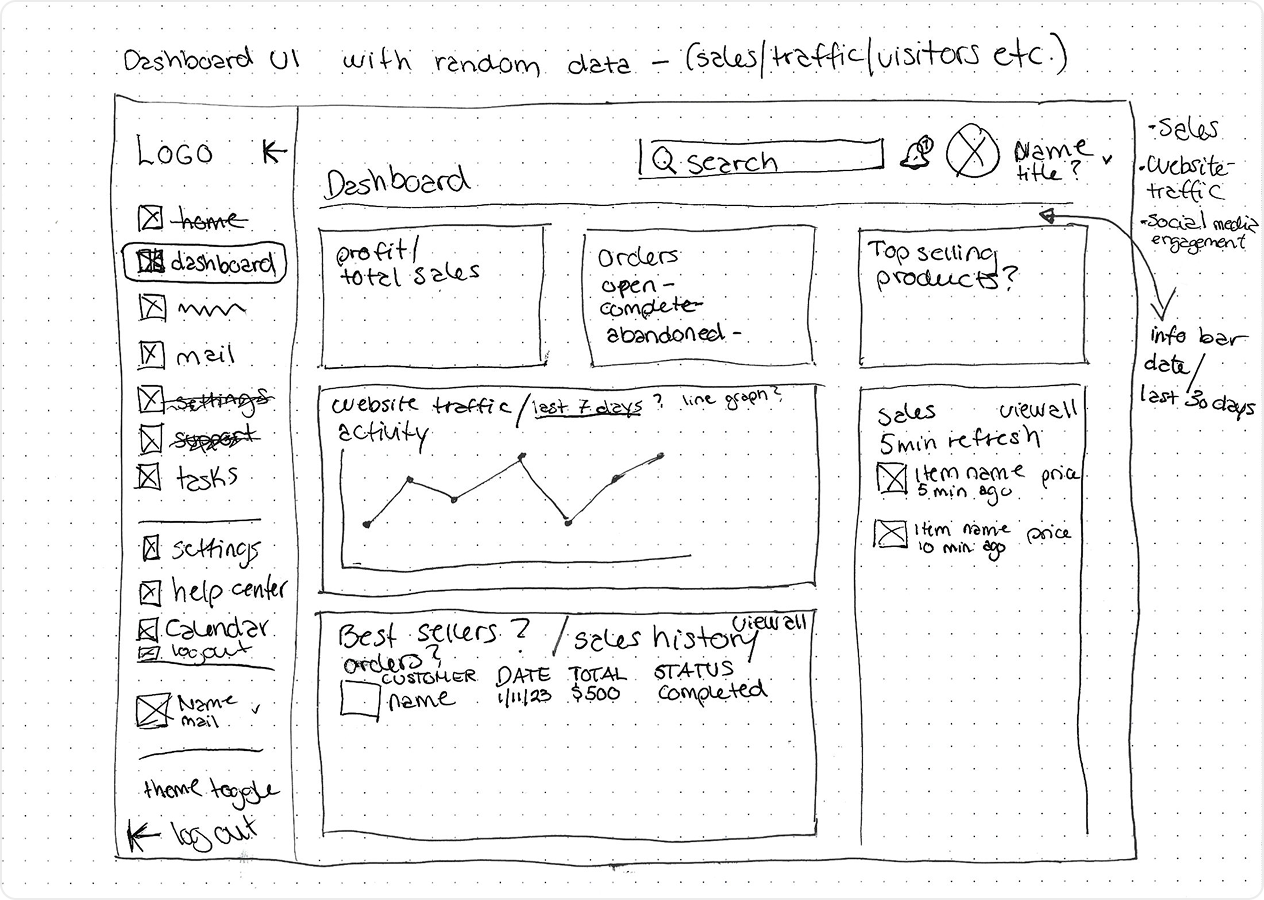 Dashboard UI with random data - (sales/traffic/visitors etc.)
LOGO
home
dashboard
mail
settings
support
tasks
settings
help center
Calendar
logout
Name
mail
theme toggle
log out
Dashboard
search
1
Name
title?
profit/
total sales
Orders
open -
complete -
abandoned -
Top selling
products?
website traffic / last 7 days ? line graph?
activity
sales view all
5min refresh
Item name price
5 min ago
Item name price
10 min ago
Best sellers ? / sales history view all
orders?
CUSTOMER DATE TOTAL STATUS
name 1/11/23 $500 Completed
• Sales
• Website-
traffic
• Social media
engagement
info bar
date /
last 30 days